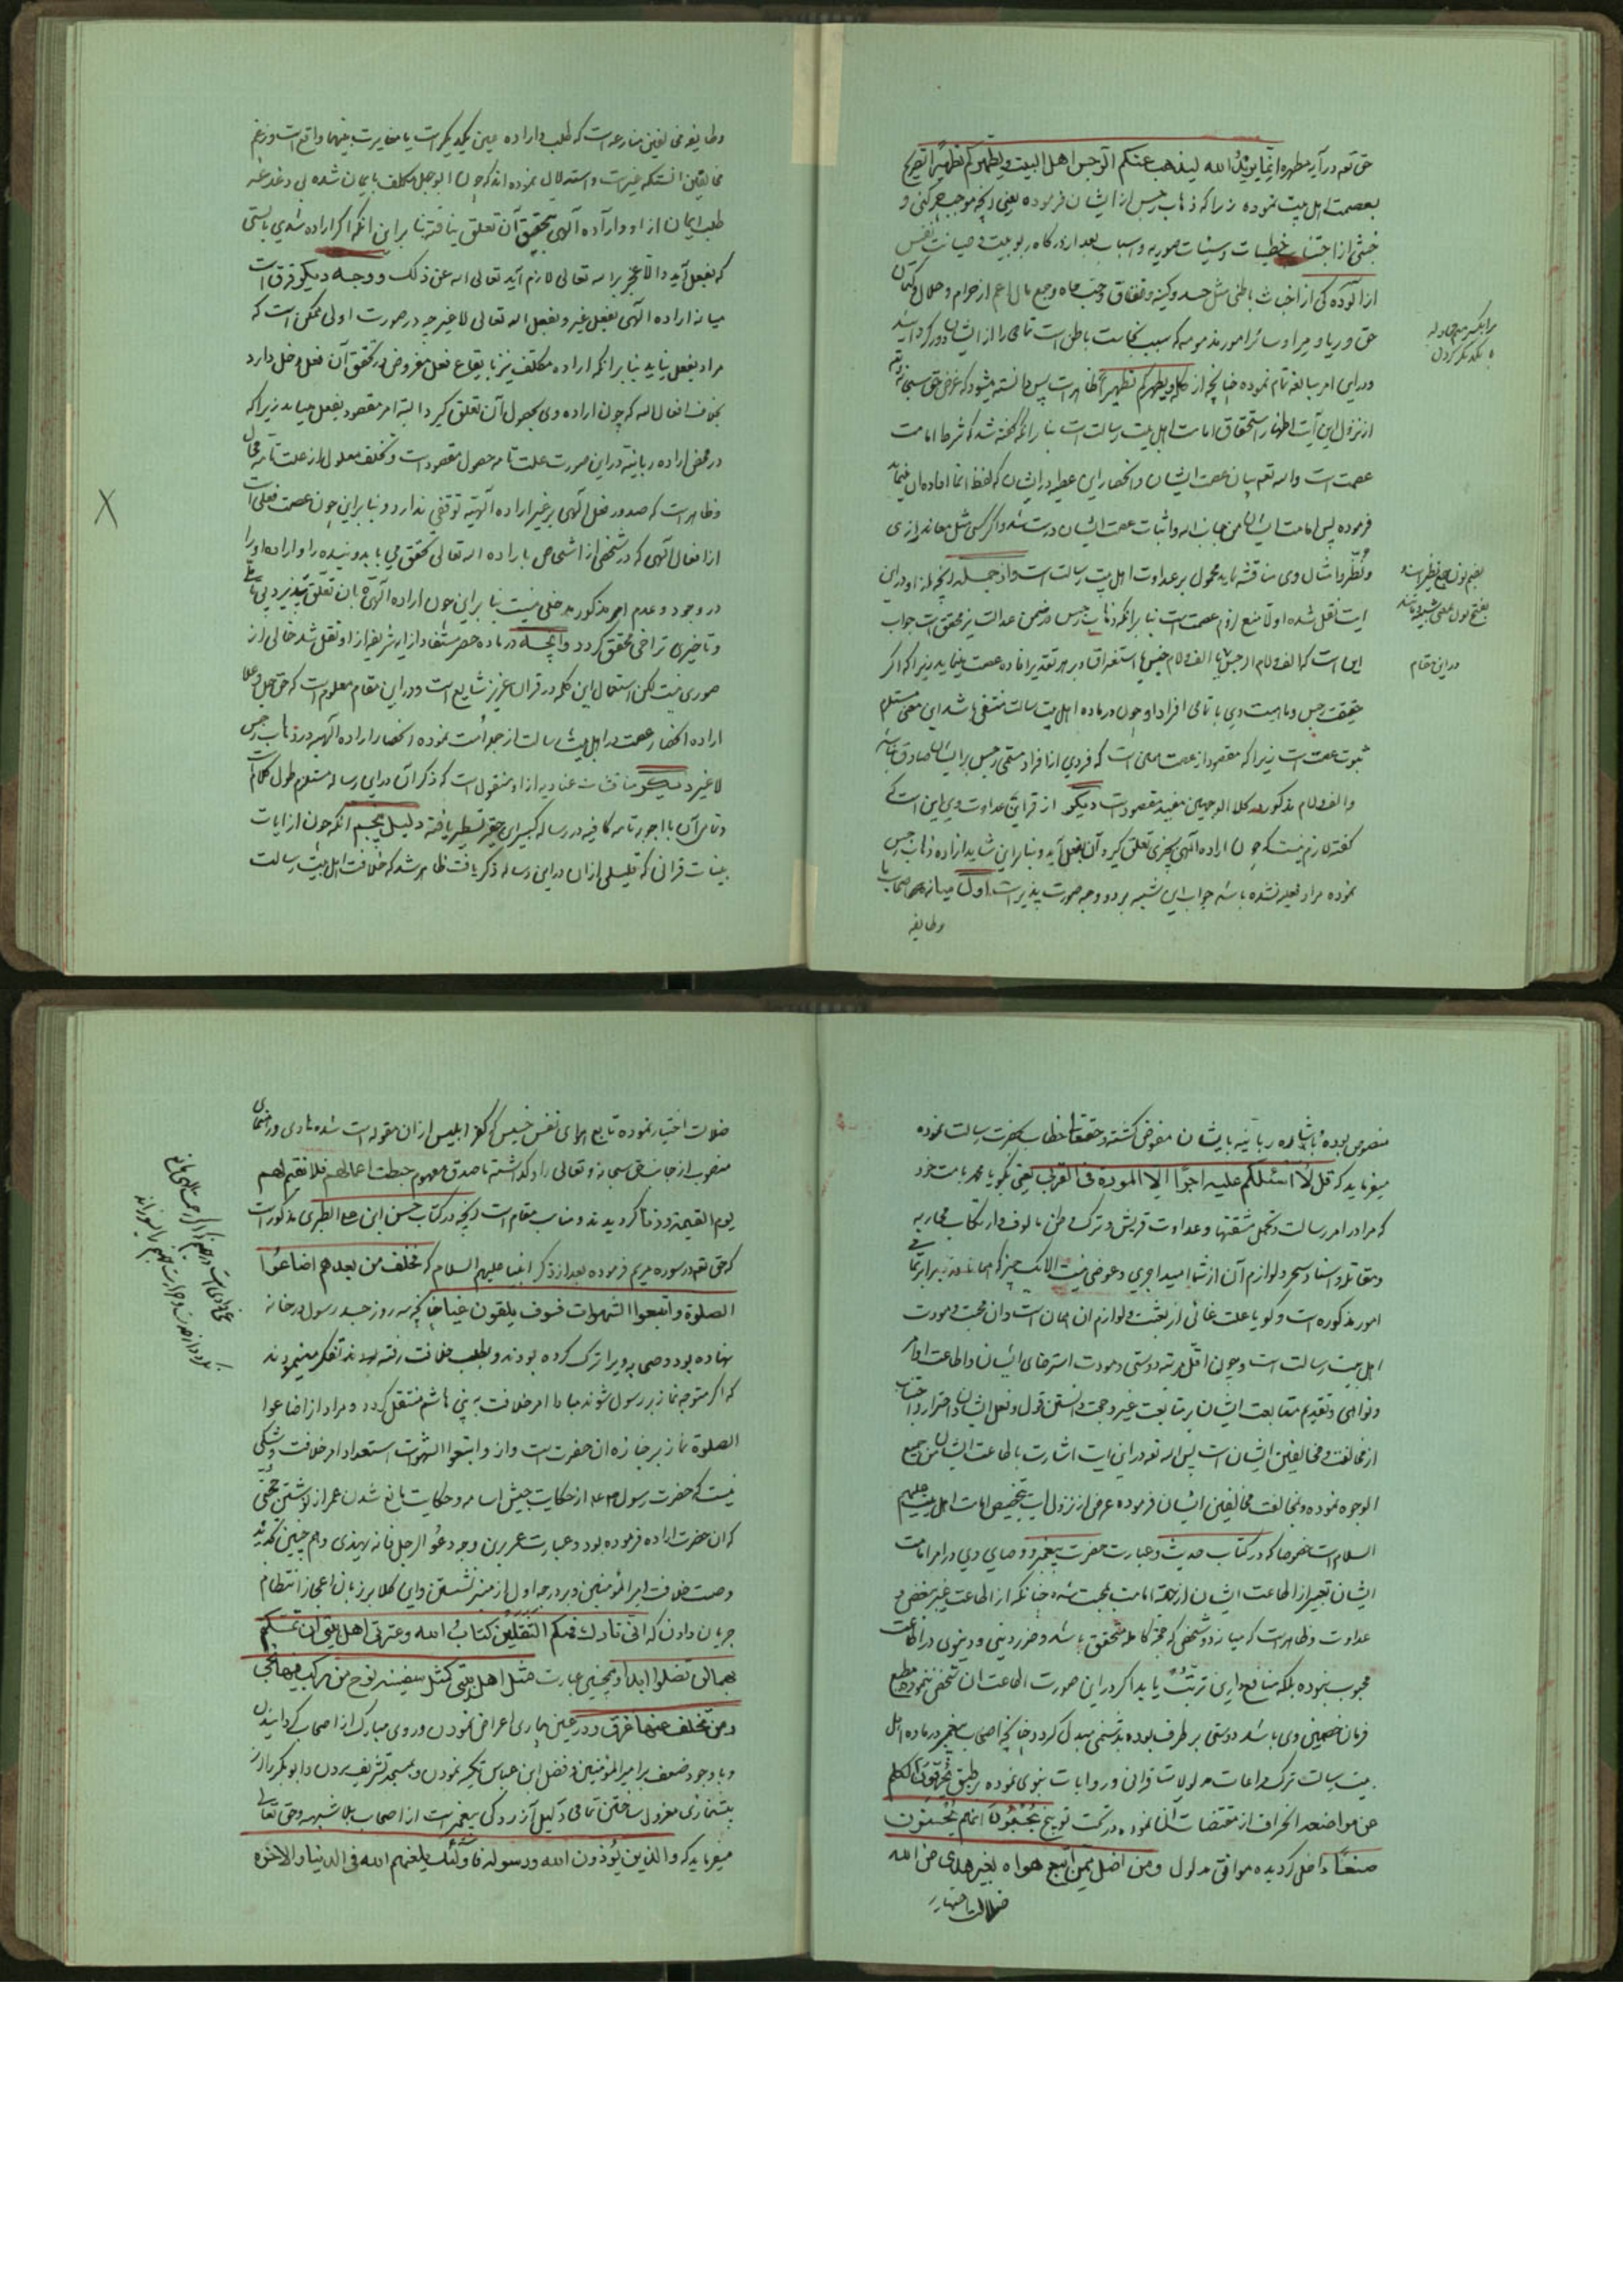 حق تعه در آیه مطهره انّما یرید الله لیذهب عنکم الرجس اهل البیت و یطهرکم تطهیرًا تصریح
بعصمت اهل بیت نموده زیرا که ذهاب رجس از ایشان فرموده یعنی آنچه موجب چرکنی و
از اجتناب خطیات و سیئات صوریه و اسباب بعد از درگاه ربوبیت و صیانت نفس
از آلودگی از اخباث باطنی مثل حسد و کینه و نفاق و حب جاه و جمع مال اعم از حرام و حلال و کتمان
حق و ریا و مرا و سائر امور مذمومه که سبب نجاست باطن است تمامی را از ایشان دور کرداینده
مرا بکسر میم مجادله
با یکدیگر کردن
و در این امر مبالغه تام نموده چنانچه از کلام و یطهرکم تطهیرًا ظاهر است پس دانسته میشود که غرض حق سبحانه و تعه
از نزول این آیت اظهار استحقاق امامت اهل بیت رسالت است بنا بر آنکه گفته شد که شرط امامت
عصمت است و الله تعه بیان عصمت ایشان و انحصار این عطیه در ایشان که لفظ انما افاده آن مینماید
فرموده پس امامت ایشان من جانب الله و اثبات عصمت ایشان درست شد و اگر کسی مثل معاند رازی
و نُظّر و امثال وی مناقشه نماید محمول بر عداوت اهل بیت رسالت است و از جمله آنچه از او در این
بضم نون جمع نظیر است و
بفتح نون بمعنی شبیه و مانند
آیت نقل شده اولا منع لزوم عصمت است بنا بر آنکه ذهاب رجس در ضمن عدالت نیز محقق است جواب
این است که الف و لام الرجس یا الف و لام جنس یا استغراق و بر هر تقدیر افاده عصمت مینماید زیرا که اگر
در این مقام
حقیقت رجس و ماهیت وی با تمامی افراد او چون در ماده اهل بیت رسالت منتفی باشد این معنی مستلزم
ثبوت عصمت است زیرا که مقصود از عصمت این معنی است که فردی از افراد معنی رجس بر ایشان صادق نباشد
و الف و لام مذکوره کلا الوجهین مفید مقصود است دیگر از قراین عداوت وی این است که
گفته لازم نیست که چون اراده الهی بچیزی تعلق گیرد آن بفعل آید و بنا بر این شاید اراده ذهاب رجس
نموده مراد بفعل نشده باشد جواب این شبهه بر دو وجه صورت پذیر است اول میانه اصحاب ما
وطایفه
وطایفه مخالفین منازعه است که طلب و اراده عین یکدیگر است یا مغایرت بینهما واقع است و زعم
مخالفین آنستکه غیر است و استدلال نموده اند که چون ابوجهل مکلف بایمان شده بی دغدغه
طلب ایمان از او و اراده الهی بتحقق آن تعلق نیافته بنا بر این آنکه اگر اراده شدی بایستی
که بفعل آید و الا عجز بر الله تعالی لازم آید تعالی الله عن ذلک و وجه دیگر فرق است
میانه اراده الهی بفعل غیر و بفعل الله تعالی لا غیر چه در صورت اولی ممکن است که
مراد بفعل نیاید بنا بر آنکه اراده مکلف نیز بایقاع فعل مفروض در تحقق آن فعل دخل دارد
بخلاف افعال الله که چون اراده وی بحصول آن تعلق گیرد البته امر مقصود بفعل میآید زیرا که
در محض اراده ربانیه در این صورت علت تامه حصول مقصود است و تخلف معلول از علت تامه محال
و ظاهر است که صدور فعل الهی بر غیر اراده الهیه توقفی ندارد و بنا بر این چون عصمت فعلی است
از افعال الهی که در شخصی از اشخاص باراده الله تعالی تحقق می یابد و بنده را و اراده او را
در وجود و عدم امر مذکور مدخلی نیست بنا بر این چون اراده الهی بان تعلق پذیرد بی
و تاخیری تراخی محقق گردد و آنچه در ماده حصر مستفاد از آیه شریفه از او نقل شد خالی از
صوری نیست لکن استعمال این کلمه در قران عزیز شایع است و در این مقام معلوم است که حق جل و علا
اراده انحصار عصمت در اهل بیت رسالت از جمله امت نموده و انحصار اراده الهیه در ذهاب رجس
لا غیر و دیگر مناقشات عنادیه از او منقول است که ذکر آن در این رساله مستلزم طول کلام است
و تمامی آن با اجوبه تامه کافیه در رساله کبیر این حقیر تسطیر یافته دلیل پنجم آنکه چون از ایات
بینات قرانی که قلیلی از ان در این رساله ذکر یافت ظاهر شد که خلافت اهل بیت رسالت
منصوص بوده باشاره ربانیه بایشان مفوض گشته و حقتعالی خطاب بحضرت رسالت نموده
میفرماید که قل لا اسئلکم علیه اجرًا الا المودة فی القربی یعنی بگو یا محمد بامت خود
که مرا در امر رسالت و تحمل مشقتها و عداوت قریش و ترک وطن مالوف و ارتکاب محاربه
و مقاتله و اسناد سحر و لوازم آن از شما امید اجری و عوضی نیست الا یک چیز که
امور مذکوره است و گویا علت غائی از بعثت و لوازم ان همان است و ان محبت و مودت
اهل بیت رسالت است و چون اقل مرتبه دوستی و مودت استرضای ایشان و اطاعت اوامر
و نواهی و تقدیم متابعت ایشان بر متابعت غیر و حجت دانستن قول و فعل ایشان و احتراز و اجتناب
از مخالفت و مخالفین ایشان است پس الله تعه در این ایت اشارت باطاعت ایشان من جمیع
الوجوه نموده و بمخالفت مخالفین ایشان فرموده غرض از نزول ایت تخصیص امامت اهل بیت علیهم
السلام است خصوصا که در کتاب حدیث و عبارت حضرت پیغمبر و وصایای وی در امر امامت
ایشان تعبیر از اطاعت ایشان از جهة امامت بمحبت شده چنانکه از اطاعت غیر ببغض و
عداوت و ظاهر است که میانه دو شخص که محبة کامله متحقق باشد و ضرر دینی و دنیوی در اطاعت
محبوب نبوده بلکه منافع دارین ترتّب یابد اگر در این صورت اطاعت ان شخص ننموده مطیع
فرمان خصمین وی باشد دوستی بر طرف بوده بدشمنی مبدل گردد چنانچه اصحاب پیغمبر در ماده اهل
بیت رسالت ترک مراعات مدلولات قرانی و روایات نبوی نموده بر طبق یحرفون الکلم
عن مواضعه انحراف از مقتضات آنها نموده در تحت توبیخ یحسبون انهم یحسنون
صنعًا داخل گردیده موافق مدلول و من اضل ممن اتبع هواه بغیر هدی من الله
ضلالت اختیار
ضلالت اختیار نموده تابع اهوای نفس خسیس که کفر ابلیس از ان مقوله است شده هادی و رهنمای
منصوب از جانب حق سبحانه و تعالی را گذاشته ماصدق مفهوم حبطت اعمالهم فلا نقیم لهم
یوم القیمة وزنا گردیدند و مناسب مقام است آنچه در کتاب حسن ابن علی الطبری مذکور است
که حق تعه در سوره مریم فرموده بعد از ذکر انبیا علیهم السلام که فخلف من بعدهم اضاعوا
الصلوة و اتبعوا الشهوات فسوف یلقون غیا چنانچه سه روز جسد رسول در خانه
نهاده بود و وصی ویرا ترک کرده بودند و بطلب خلافت رفته بودند تفکر مینمودند
که اگر متوجه نماز بر رسول شوند مبادا امر خلافت به بنی هاشم منتقل گردد و مراد از اضاعوا
الصلوة نماز بر جنازه ان حضرت است و از و اتبعوا الشهوات استعداد امر خلافت و شکی
نیست که حضرت رسول صلعم از حکایت جیش اسامه و حکایت مانع شدن عمر از نوشتن حجتی
که ان حضرت اراده فرموده بود و عبارت عمر بن وجود دعوا الرجل فانه لیهذی و هم چنین
وصیت خلافت امیر المؤمنین و بر درجه اول از منبر نشستن و این کلام بر زبان اعجاز انتظام
جریان دادن که انی تارک فیکم الثقلین کتاب الله و عترتی اهل بیتی ان تمسکتم
بهما لن تضلوا ابدا و همچنین عبارت مثل اهل بیتی کمثل سفینه نوح من رکب فیها نجی
و من تخلف عنها غرق و در عین بیماری اعراض نمودن و روی مبارک از اصحاب گردانیدن
و با وجود ضعف بر امیر المؤمنین و فضل ابن عباس تکیه نمودن و بمسجد تشریف بردن و ابو بکر را از
پیشنمازی معزول ساختن تمامی دلیل آزردگی پیغمبر است از اصحاب بلا شبهه و حق تعالی
میفرماید که و الذین یؤذون الله و رسوله فاولئک یلعنهم الله فی الدنیا و الاخره